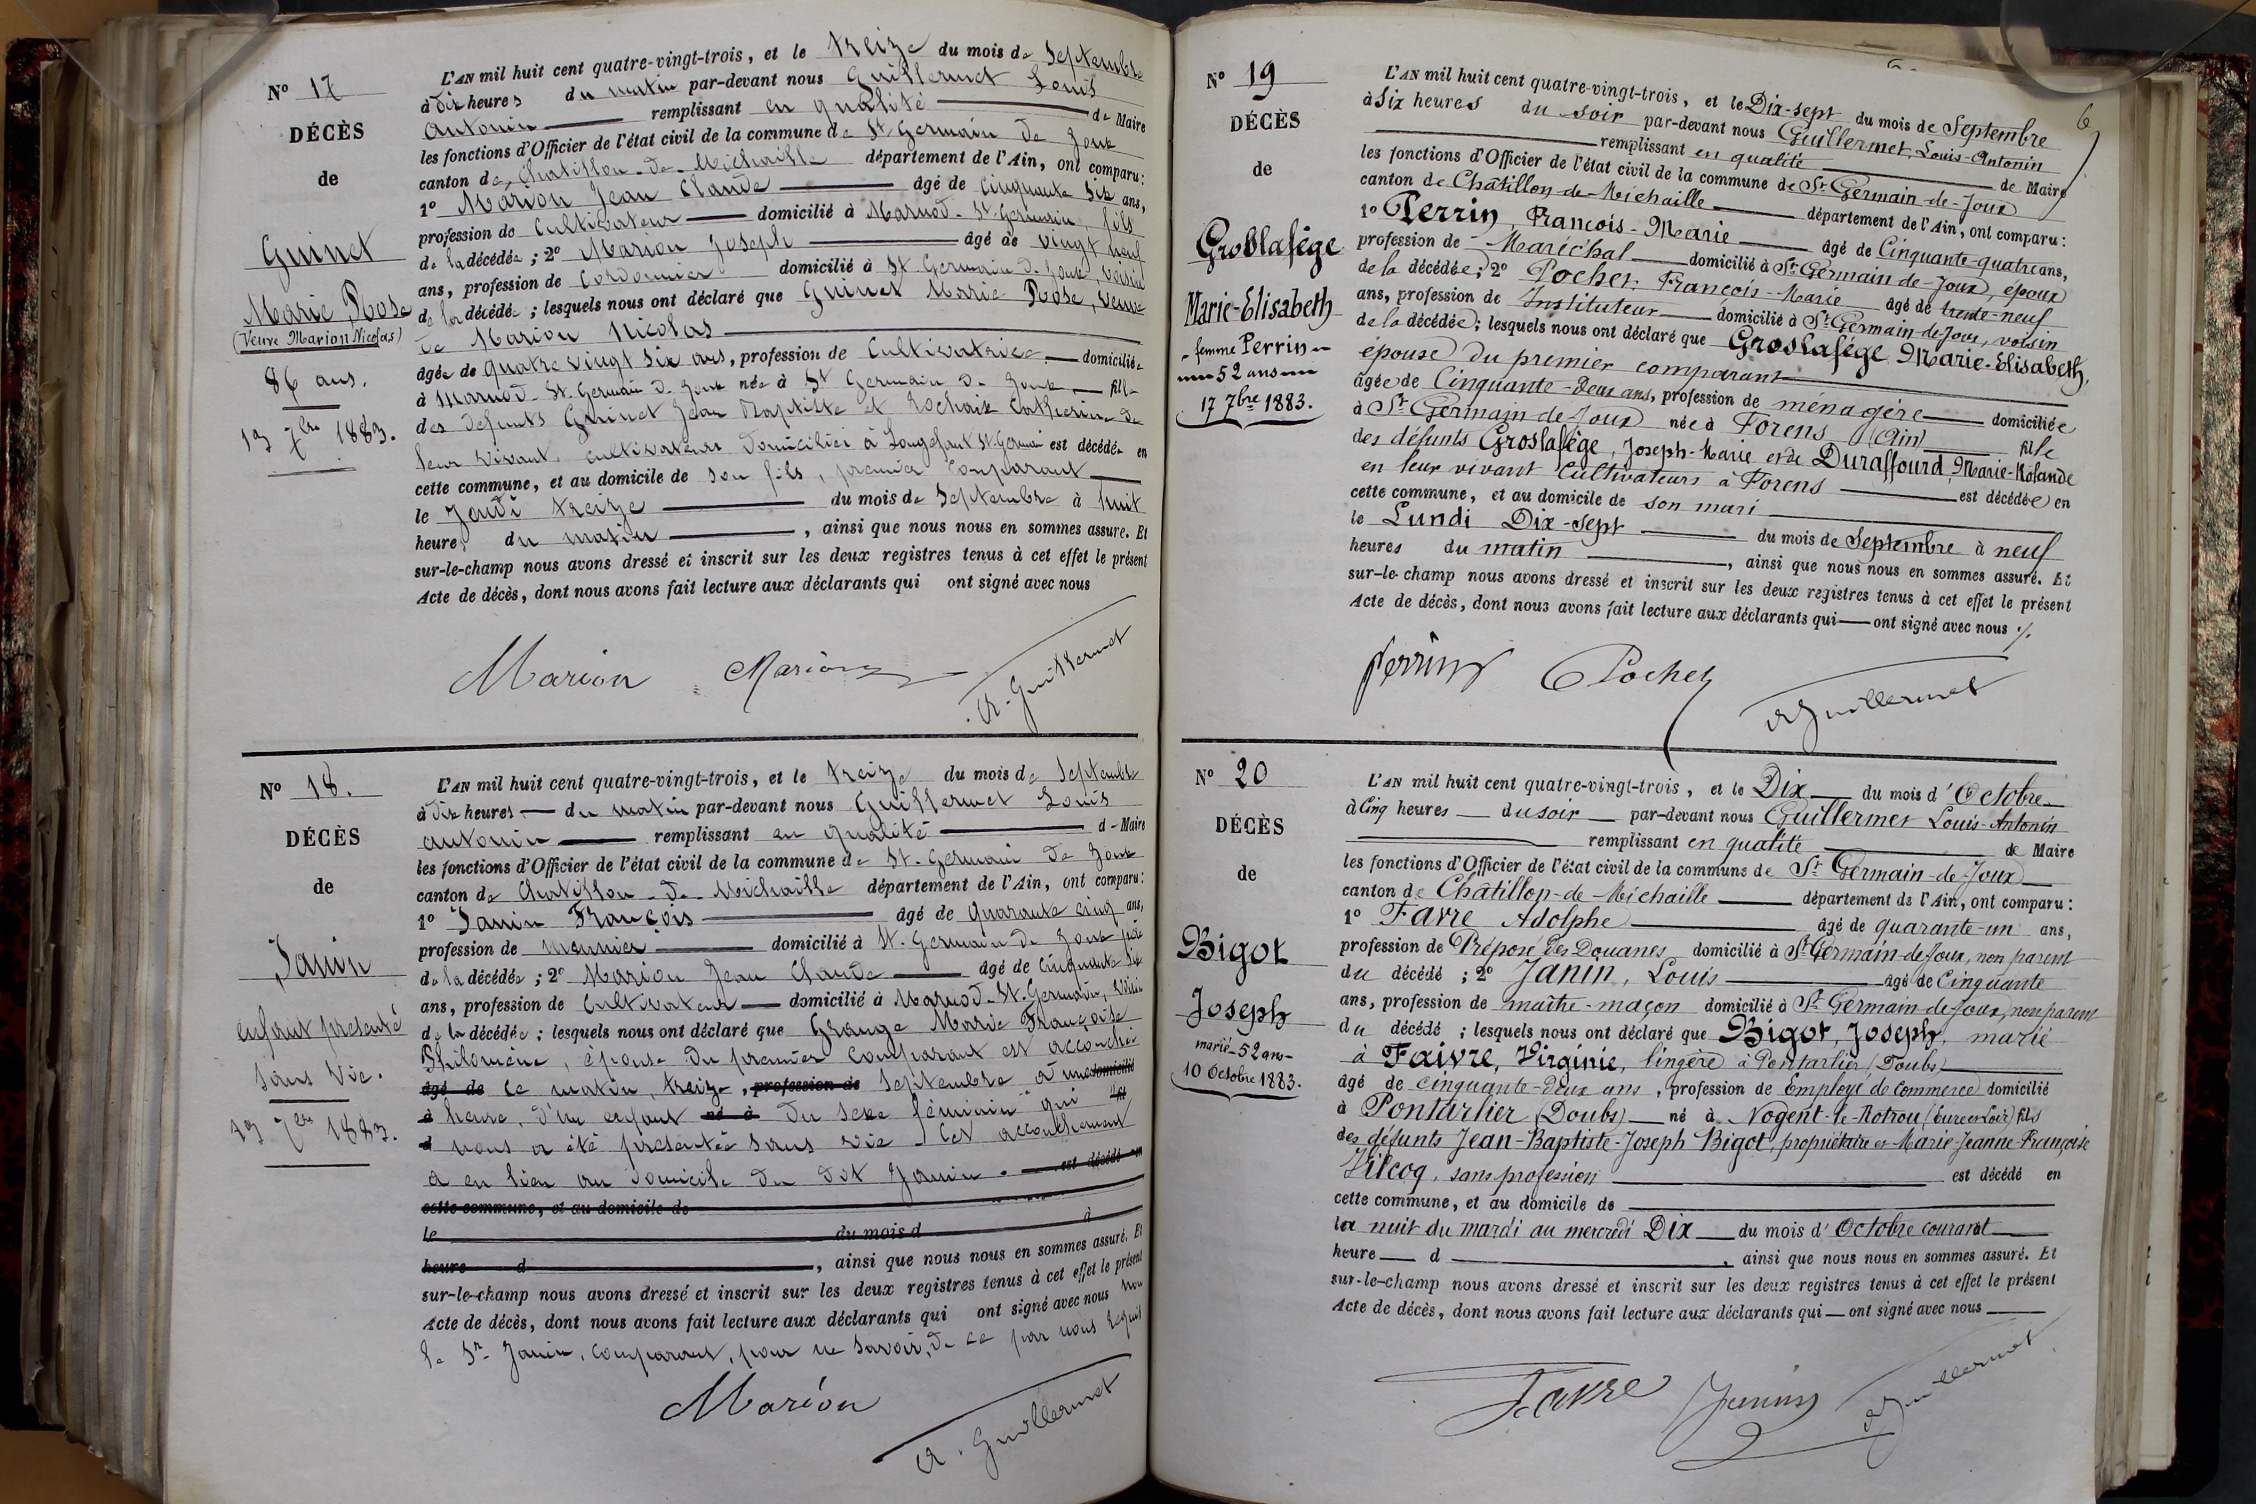 N° 17
DÉCÈS
de
Guinet
Marie Rose
(Veuve Marion Nicolas)
86 ans.
13 7bre 1883.
L'AN mil huit cent quatre-vingt-trois, et le treize du mois de Septembre
à dix heures du matin par-devant nous Guillermet Louis
Antonin remplissant en qualité de Maire
les fonctions d'Officier de l'état civil de la commune de St Germain de Joux
canton de Chatillon-de-Michaille département de l'Ain, ont comparu:
1° Marion Jean Claude âgé de Cinquante Six ans,
profession de Cultivateur domicilié à Marnod-St Germain, fils
de la décédée; 2° Marion Joseph âgé de vingt neuf
ans, profession de Cordonnier domicilié à St Germain de Joux, voisin
de la décédée; lesquels nous ont déclaré que Guinet Marie Rose, veuve
de Marion Nicolas
âgée de quatre vingt six ans, profession de Cultivatrice domiciliée
à Marnod-St Germain de Joux née à St Germain de Joux fille
des défunts Guinet Jean Baptiste et Rochaix Catherine de
leur vivant cultivateurs domiciliés à Longefaut St Germain est décédée en
cette commune, et au domicile de son fils, premier comparant
le Jeudi treize du mois de Septembre à huit
heures du matin, ainsi que nous nous en sommes assuré. Et
sur-le-champ nous avons dressé et inscrit sur les deux registres tenus à cet effet le présent
Acte de décès, dont nous avons fait lecture aux déclarants qui ont signé avec nous
Marion Marion A. Guillermet
N° 18.
DÉCÈS
de
Janin
enfant présenté
sans vie.
13 7bre 1883.
L'AN mil huit cent quatre-vingt-trois, et le treize du mois de Septembre
à dix heures du matin par-devant nous Guillermet Louis
Antonin remplissant en qualité de Maire
les fonctions d'Officier de l'état civil de la commune de St. Germain de Joux
canton de Chatillon-de-Michaille département de l'Ain, ont comparu:
1° Janin François âgé de quarante cinq ans,
profession de meunier domicilié à St. Germain de Joux père
de la décédée; 2° Marion Jean Claude âgé de cinquante six
ans, profession de Cultivateur domicilié à Marnod-St. Germain, voisin
de la décédée; lesquels nous ont déclaré que Grange Marie Françoise
Philomène, épouse du premier comparant est accouchée
âgé de ce matin, treize, profession de Septembre à une domicilié
à heure, d'un enfant né à du sexe féminin qui fils
d nous a été présentée sans vie. Cet accouchement
a eu lieu au domicile du dit Janin. est décédé en
cette commune, et au domicile de
le du mois d à
heure d, ainsi que nous nous en sommes assuré. Et
sur-le-champ nous avons dressé et inscrit sur les deux registres tenus à cet effet le présent
Acte de décès, dont nous avons fait lecture aux déclarants qui ont signé avec nous non
le Sr Janin, comparant, pour ne savoir, de ce par nous requis
Marion A. Guillermet
6
N° 19
DÉCÈS
de
Groslafége
Marie-Elisabeth
femme Perrin
52 ans
17 7bre 1883.
L'AN mil huit cent quatre-vingt-trois, et le Dix-sept du mois de Septembre
à Six heures du soir par-devant nous Guillermet, Louis-Antonin
remplissant en qualité de Maire
les fonctions d'Officier de l'état civil de la commune de St Germain-de-Joux
canton de Châtillon-de-Michaille département de l'Ain, ont comparu:
1° Perrin, François-Marie âgé de Cinquante-quatre ans,
profession de Maréchal domicilié à St Germain-de-Joux, époux
de la décédée; 2° Pochet François-Marie âgé de trente-neuf
ans, profession de Instituteur domicilié à St Germain-de-Joux, voisin
de la décédée; lesquels nous ont déclaré que Groslafége Marie-Elisabeth,
épouse du premier comparant
âgée de Cinquante-deux ans, profession de ménagère domiciliée
à St Germain-de-Joux née à Forens (Ain) fille
des défunts Groslafége, Joseph-Marie et de Duraffourd, Marie-Rolande
en leur vivant Cultivateurs à Forens est décédée en
cette commune, et au domicile de son mari
le Lundi Dix-sept du mois de Septembre à neuf
heures du matin, ainsi que nous nous en sommes assuré. Et
sur-le-champ nous avons dressé et inscrit sur les deux registres tenus à cet effet le présent
Acte de décès, dont nous avons fait lecture aux déclarants qui ont signé avec nous ./.
Perrin Pochet A Guillermet
N° 20
DÉCÈS
de
Bigot
Joseph
marié-52 ans
10 Octobre 1883.
L'AN mil huit cent quatre-vingt-trois, et le Dix du mois d'Octobre
à Cinq heures du soir par-devant nous Guillermet Louis-Antonin
remplissant en qualité de Maire
les fonctions d'Officier de l'état civil de la commune de St Germain-de-Joux
canton de Châtillon-de-Michaille département de l'Ain, ont comparu:
1° Favre Adolphe âgé de quarante-un ans,
profession de Préposé des Douanes domicilié à St Germain-de-Joux, non parent
du décédé; 2° Janin, Louis âgé de Cinquante
ans, profession de maître-maçon domicilié à St Germain-de-Joux, non parent
du décédé; lesquels nous ont déclaré que Bigot, Joseph, marié
à Faivre, Virginie, lingère à Pontarlier (Doubs)
âgé de cinquante-deux ans, profession de Employé de Commerce domicilié
à Pontarlier (Doubs) né à Nogent-le-Rotrou (Eure et Loir) fils
des défunts Jean-Baptiste-Joseph Bigot, propriétaire et Marie-Jeanne-Françoise
Vilcoq, sans profession est décédé en
cette commune, et au domicile de
la nuit du mardi au mercredi Dix du mois d'Octobre courant
heure d, ainsi que nous nous en sommes assuré. Et
sur-le-champ nous avons dressé et inscrit sur les deux registres tenus à cet effet le présent
Acte de décès, dont nous avons fait lecture aux déclarants qui ont signé avec nous
Favre Janin A Guillermet